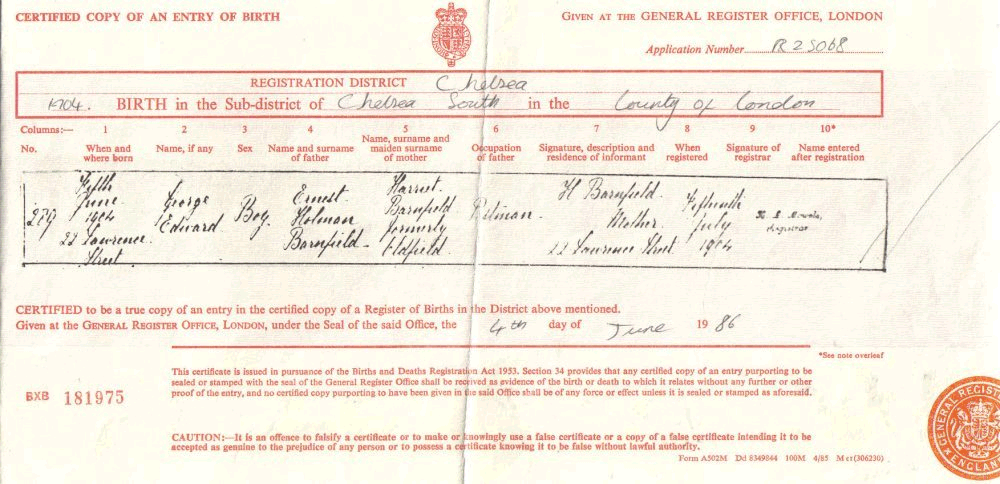 CERTIFIED COPY OF AN ENTRY OF BIRTH
GIVEN AT THE GENERAL REGISTER OFFICE, LONDON
Application Number R 25068
REGISTRATION DISTRICT Chelsea
1904. BIRTH in the Sub-district of Chelsea South in the County of London
Columns:— 1 2 3 4 5 6 7 8 9 10*
No. When and where born Name, if any Sex Name and surname of father Name, surname and maiden surname of mother Occupation of father Signature, description and residence of informant When registered Signature of registrar Name entered after registration
279
Fifth
June
1904
22 Lawrence
Street
George
Edward
Boy
Ernest
Holman
Barnfield
Harriet
Barnfield
formerly
Oldfield
H Barnfield.
Mother
22 Lawrence Street
Fifteenth
July
1904
Registrar
CERTIFIED to be a true copy of an entry in the certified copy of a Register of Births in the District above mentioned.
Given at the GENERAL REGISTER OFFICE, LONDON, under the Seal of the said Office, the 4th day of June 19 86
*See note overleaf
This certificate is issued in pursuance of the Births and Deaths Registration Act 1953. Section 34 provides that any certified copy of an entry purporting to be
sealed or stamped with the seal of the General Register Office shall be received as evidence of the birth or death to which it relates without any further or other
proof of the entry, and no certified copy purporting to have been given in the said Office shall be of any force or effect unless it is sealed or stamped as aforesaid.
BXB 181975
CAUTION:—It is an offence to falsify a certificate or to make or knowingly use a false certificate or a copy of a false certificate intending it to be
accepted as genuine to the prejudice of any person or to possess a certificate knowing it to be false without lawful authority.
Form A502M Dd 8349844 100M 4/85 Mcr(306230)
GENERAL REGISTER
ENGLAND